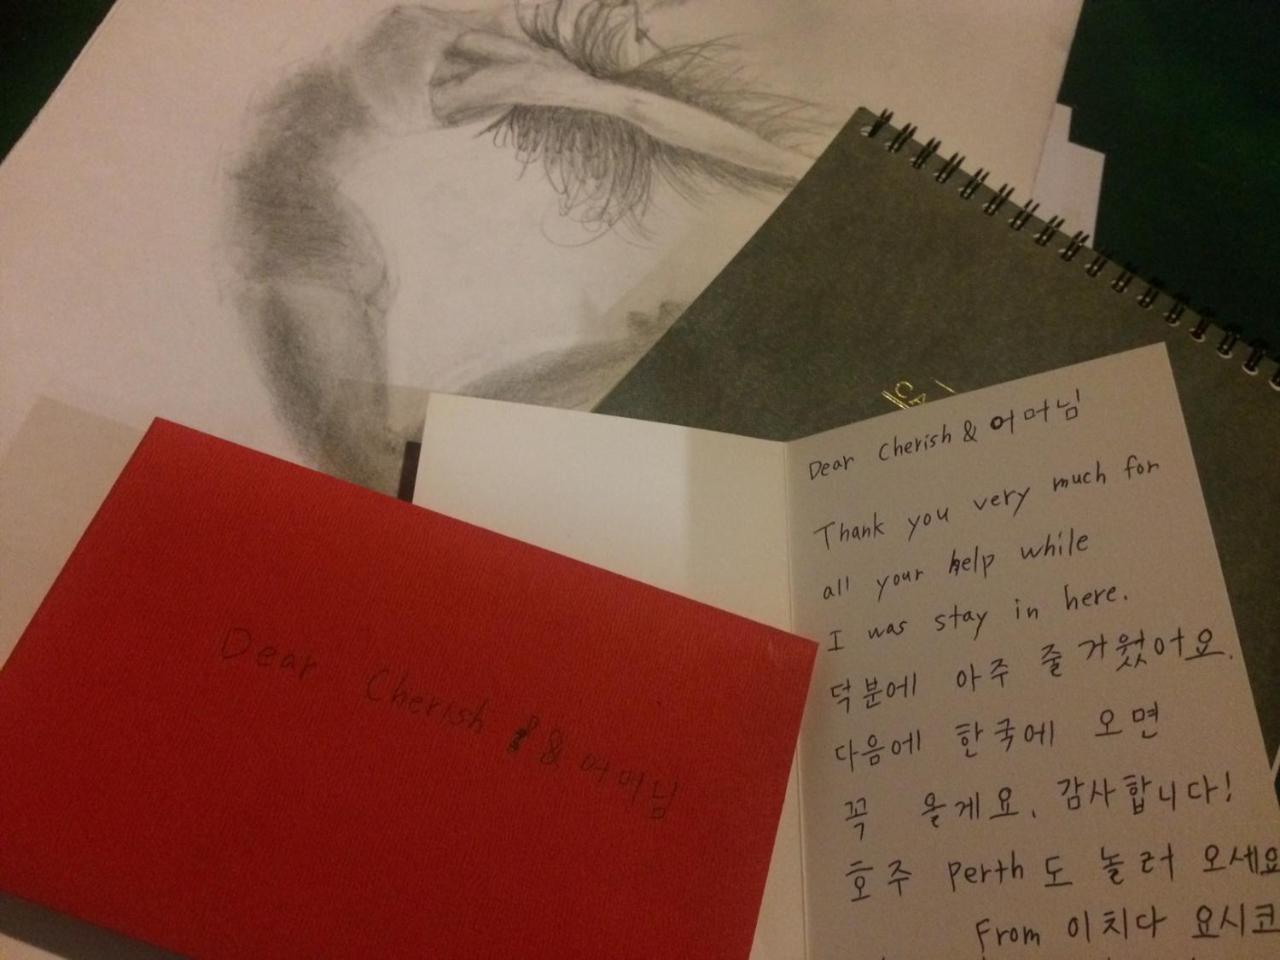 Dear Cherish & 어머님
Thank you very much for
all your help while
I was stay in here.
덕분에 아주 줄거웠어요.
다음에 한국에 오면
꼭 올게요. 감사합니다!
호주 Perth도 놀러 오세요
From 이치다 요시코
Dear Cherish & 어머님
CA